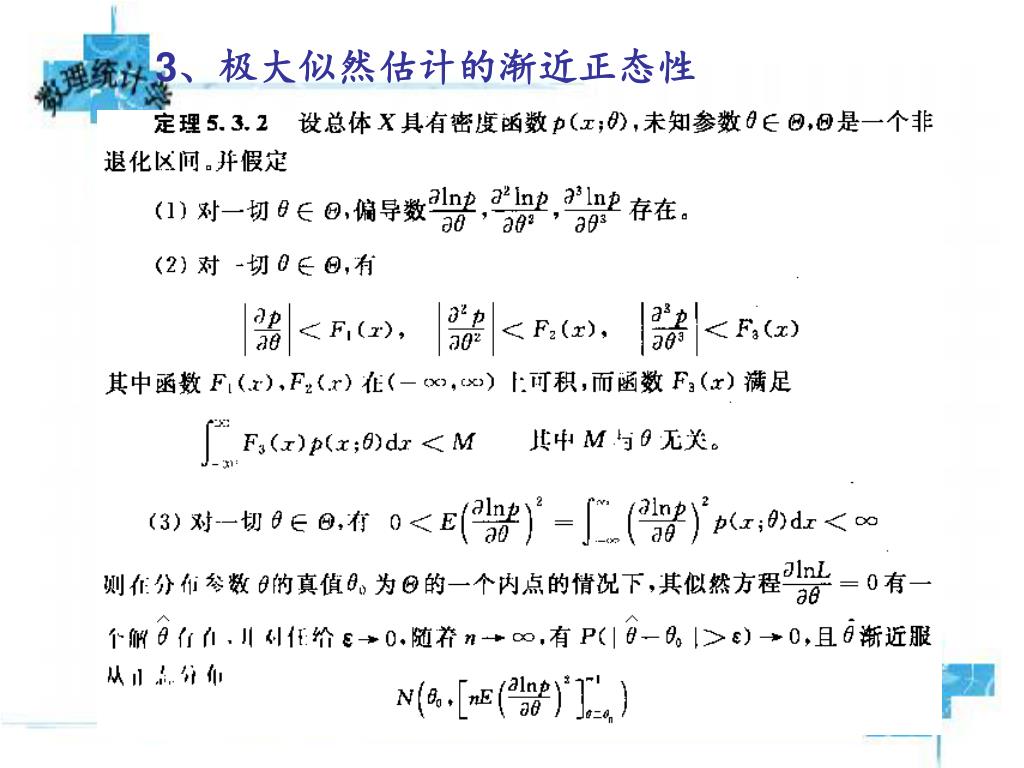 数理统计学
3、极大似然估计的渐近正态性
定理 5.3.2 设总体 X 具有密度函数 p(x;θ),未知参数 θ∈Θ,Θ是一个非
退化区间。并假定
(1) 对一切 θ∈Θ,偏导数 ∂lnp/∂θ, ∂²lnp/∂θ², ∂³lnp/∂θ³ 存在。
(2) 对一切 θ∈Θ,有
|∂p/∂θ| < F₁(x), |∂²p/∂θ²| < F₂(x), |∂³p/∂θ³| < F₃(x)
其中函数 F₁(x),F₂(x) 在(-∞,∞)上可积,而函数 F₃(x) 满足
∫_{-∞}^{∞} F₃(x)p(x;θ)dx < M 其中 M 与 θ 无关。
(3) 对一切 θ∈Θ,有 0 < E(∂lnp/∂θ)² = ∫_{-∞}^{∞} (∂lnp/∂θ)² p(x;θ)dx < ∞
则在分布参数 θ的真值 θ₀ 为 Θ 的一个内点的情况下,其似然方程 ∂lnL/∂θ = 0 有一
个解 θ̂ 存在,并对任给 ε→0,随着 n→∞,有 P(|θ̂-θ₀|>ε)→0,且 θ̂ 渐近服
从正态分布
N(θ₀,[nE(∂lnp/∂θ)²]⁻¹_{θ=θ₀})